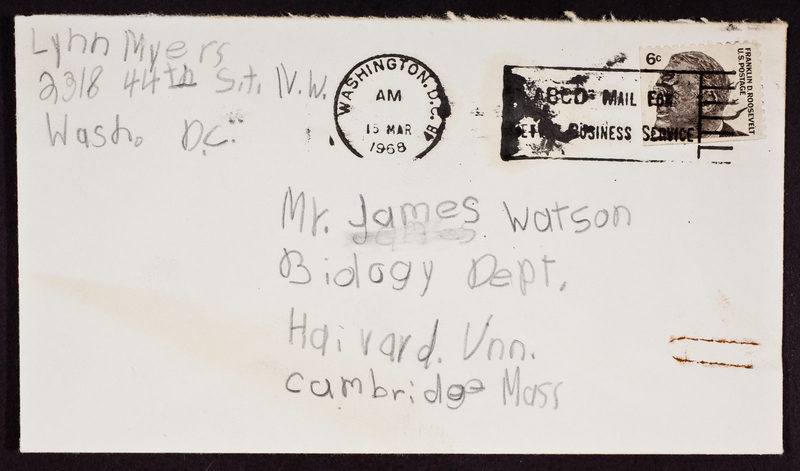 Lynn Myers
2318 44th S.t. N.W.
Wash. D.C.
WASHINGTON, D.C.
AM
15 MAR
1968
ABCD MAIL FOR
BUSINESS SERVICE
6c
FRANKLIN D. ROOSEVELT
U.S. POSTAGE
Mr. James Watson
Biology Dept.
Hairvard. Unn.
Cambridge Mass